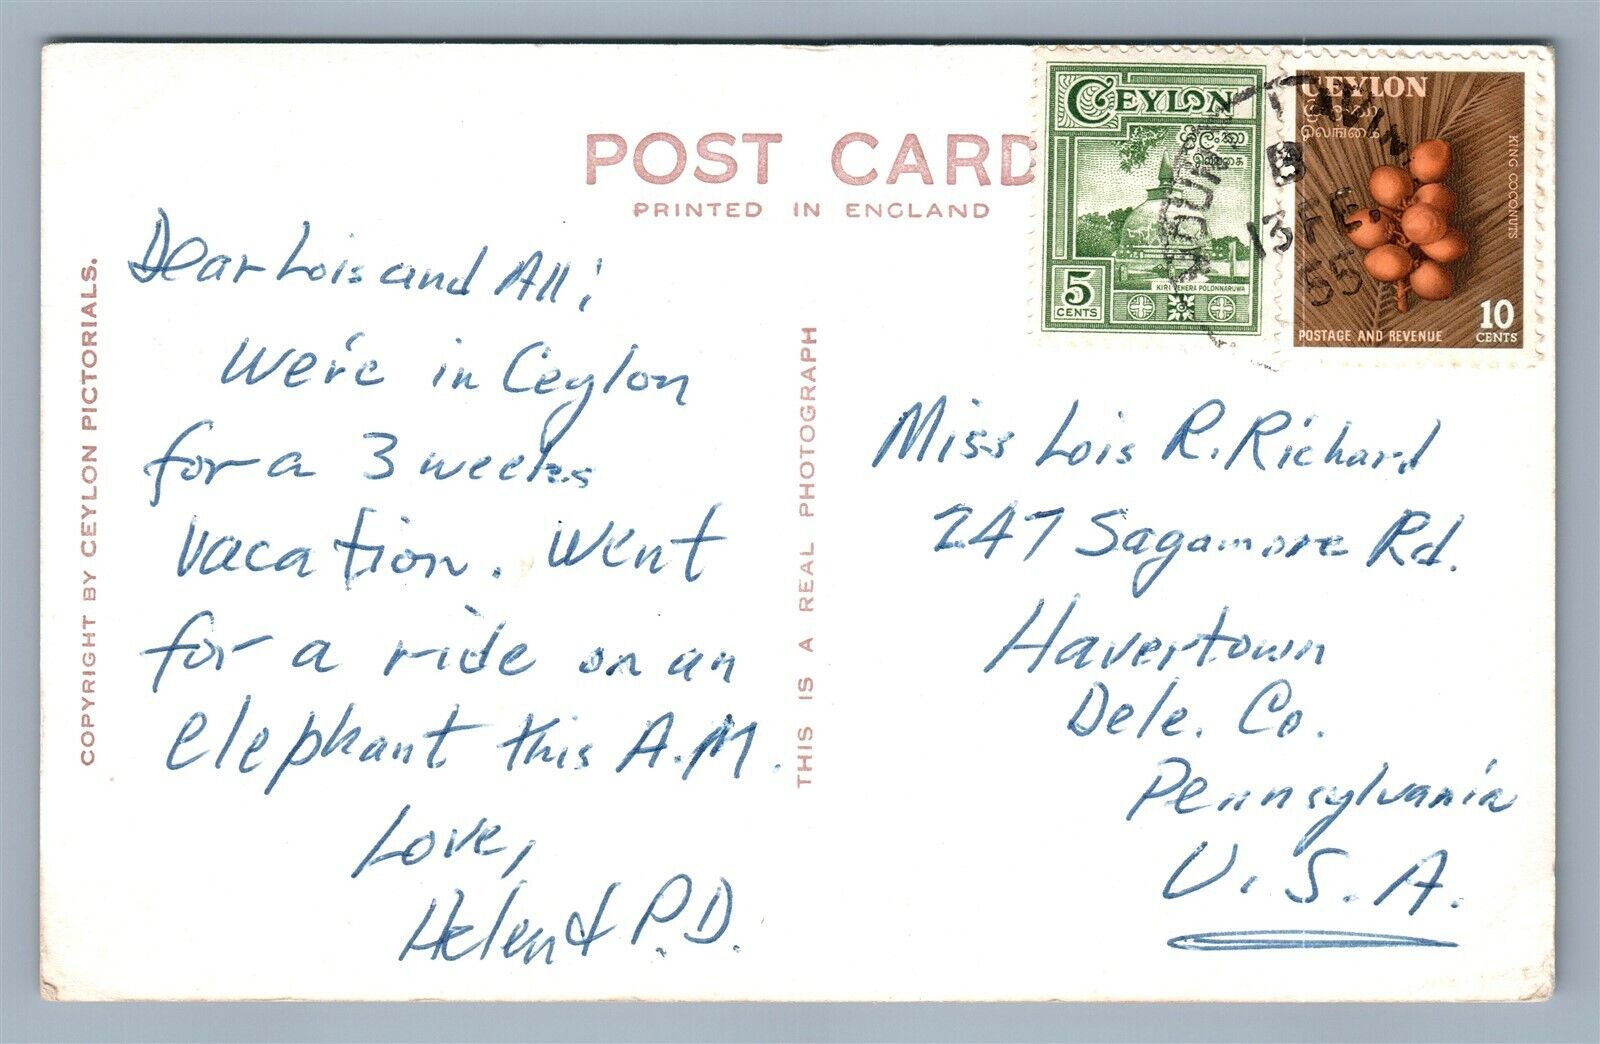 POST CARD
PRINTED IN ENGLAND
COPYRIGHT BY CEYLON PICTORIALS.
Dear Lois and All;
We're in Ceylon
for a 3 weeks
vacation. Went
for a ride on an
elephant this A.M.
Love,
Helen & P.D.
THIS IS A REAL PHOTOGRAPH
CEYLON
ශ්‍රී ලංකා
இலங்கை
KIRI VEHERA POLONNARUWA
5
CENTS
CEYLON
ලංකා
இலங்கை
KING COCONUTS
POSTAGE AND REVENUE
10
CENTS
MOUNT
B
13 FE
55
Miss Lois R. Richard
247 Sagamore Rd.
Havertown
Dele. Co.
Pennsylvania
U.S.A.